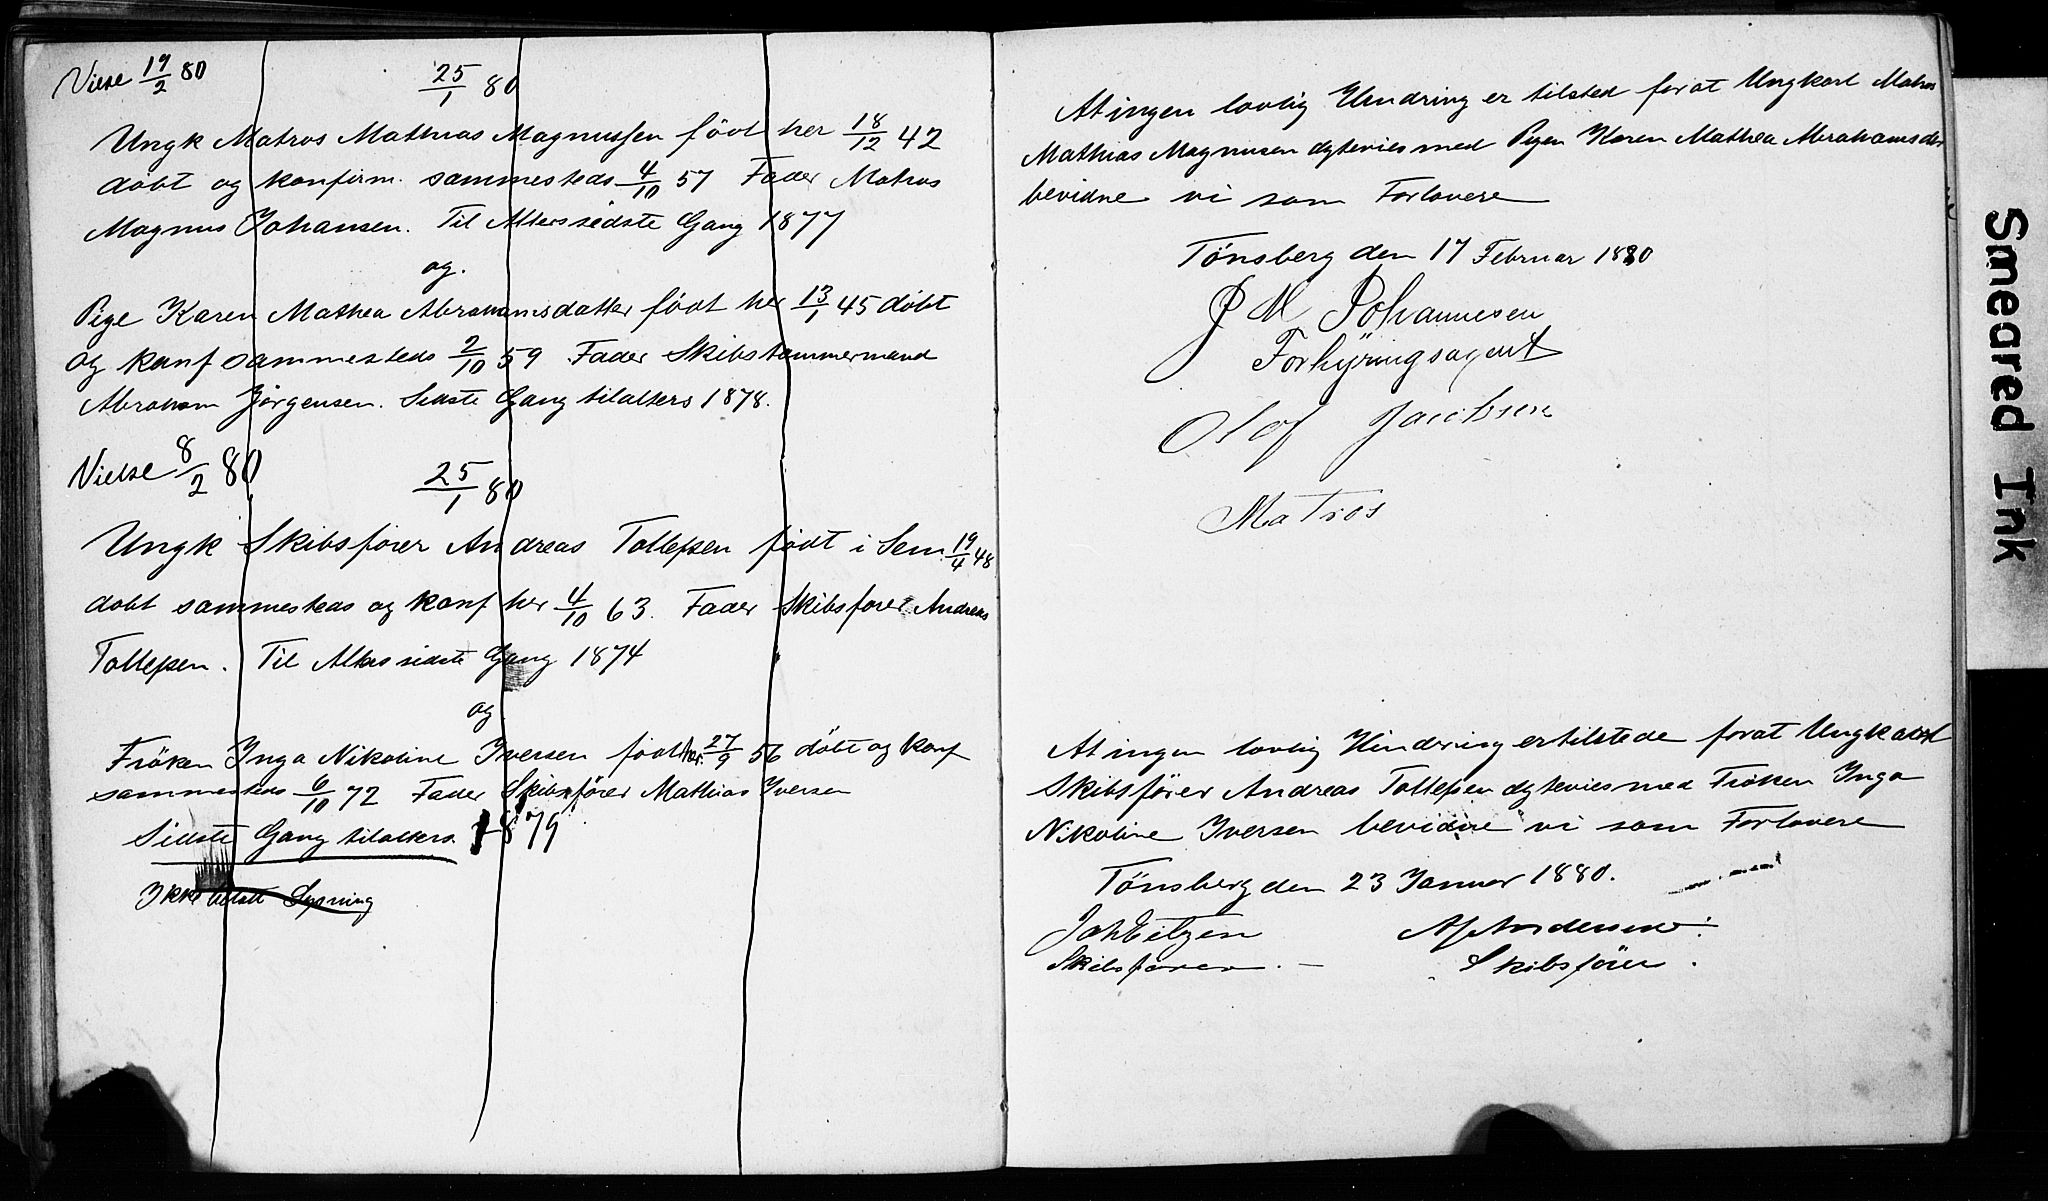 Vielse 19/2 80
25/1 80
Ungk Matros Mathias Magnussen født her 18/12 42
døbt og konfirm. sammesteds 4/10 57 Fader Matros
Magnus Johansen. Til Alters sidste Gang 1877
og.
Pige Karen Mathea Abrahamsdatter født her 13/1 45 døbt
og konf sammesteds 2/10 59 Fader Skibstømmermand
Abraham Jørgensen. Sidste Gang tilalters 1878.
Vielse 8/2 80
25/1 80
Ungk Skibsfører Andreas Tollefsen født i Sem 19/4 48
døbt sammesteds og konf her 4/10 63. Fader Skibsfører Andreas
Tollefsen. Til Alters sidste Gang 1874
og
Frøken Inga Nikoline Iversen født her 27/9 56 døbt og konf
sammesteds 6/10 72 Fader Skibsfører Mathias Iversen
Sidste Gang tilalters. 1879
Ikke tilsta Lysning
At ingen lovlig Hindring er tilsted forat Ungkarl Matros
Mathias Magnusen ægtevies med Pigen Karen Mathea Abrahamsdtr
bevidne vi som Forlovere
Tønsberg den 17 Februar 1880
J M Johannesen
Forhyringsagent
Olaf Jacobsen
Matros
At ingen lovlig Hindring er tilstede forat Ungkarl
Skibsfører Andreas Tollefsen ægtevies med Frøken Inga
Nikoline Iversen bevidne vi som Forlovere
Tønsberg den 23 Januar 1880.
Andersen
Skibsfører. – Skibsfører.
Smeared Ink